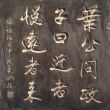 葉公問政
子曰近者
悦遠者来